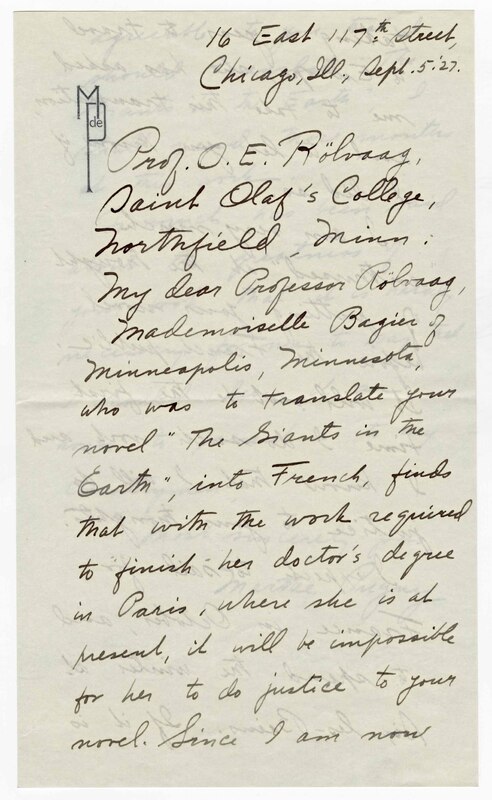 16 East 117th Street,
Chicago, Ill., Sept. 5.'27.
M de P
Prof. O. E. Rölvaag,
Saint Olaf's College,
Northfield, Minn:
My dear Professor Rölvaag,
Mademoiselle Bagier of
Minneapolis, Minnesota,
who was to translate your
novel "The Giants in the
Earth", into French, finds
that with the work required
to finish her doctor's degree
in Paris, where she is at
present, it will be impossible
for her to do justice to your
novel. Since I am now